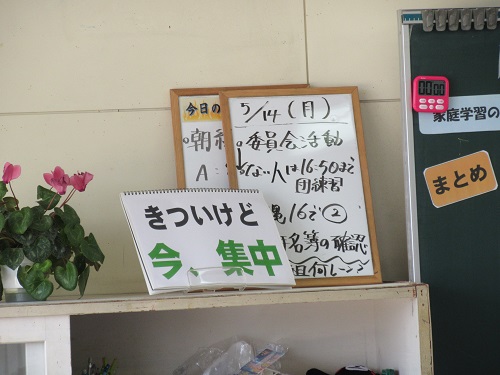 今日の
朝
A:
5/14(月)
○委員会活動
ない人は16:50まで
団練習
16で②
名等の確認
きついけど
今、集中
00:00
家庭学習の
まとめ